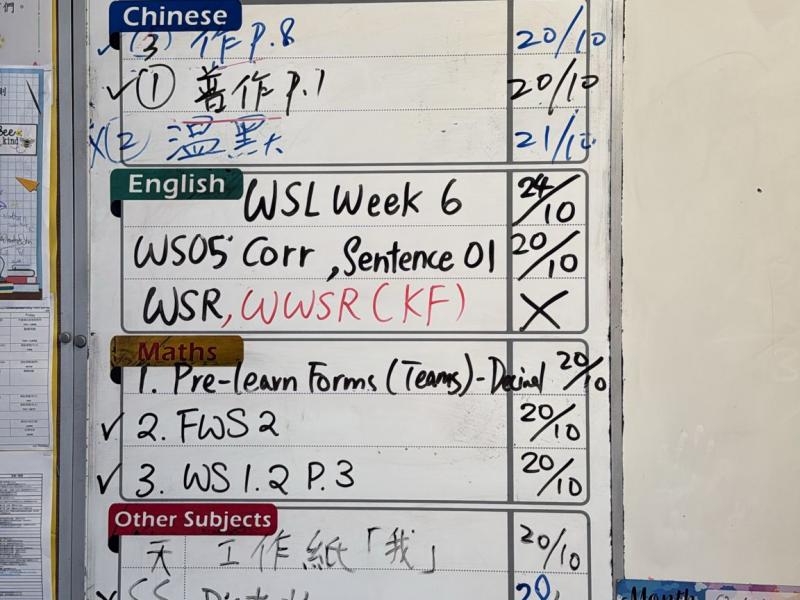 Chinese
✓(3) 作 P.8 20/10
✓① 著作 P.1 20/10
X(2) 温默 21/10
English
WSL Week 6 24/10
WS05 Corr, Sentence 01 20/10
WSR, WWSR (KF) X
Maths
1. Pre-learn Forms (Teams) - Decimal 20/10
✓ 2. FWS 2 20/10
✓ 3. WS 1.2 P.3 20/10
Other Subjects
天 工作紙「我」 20/10
Bee
kind
Month